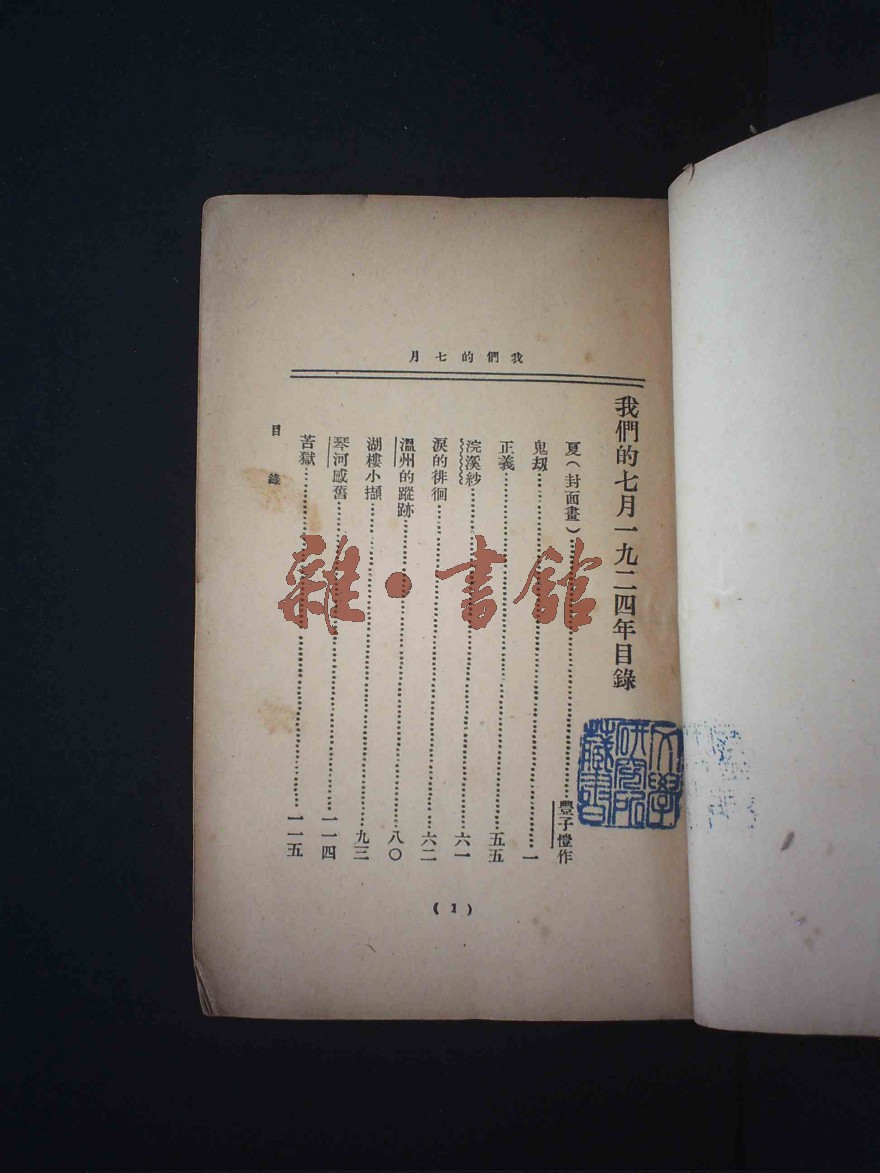 我們的七月
我們的七月一九二四年目錄
夏（封面畫）……豐子愷作
鬼劫……一
正義……五五
浣溪紗……六一
淚的徘徊……六二
溫州的蹤跡……八〇
湖樓小擷……九三
琴河感舊……一一四
苦獄……一一五
目錄
(1)
雜·書館
文學
研究所
藏書